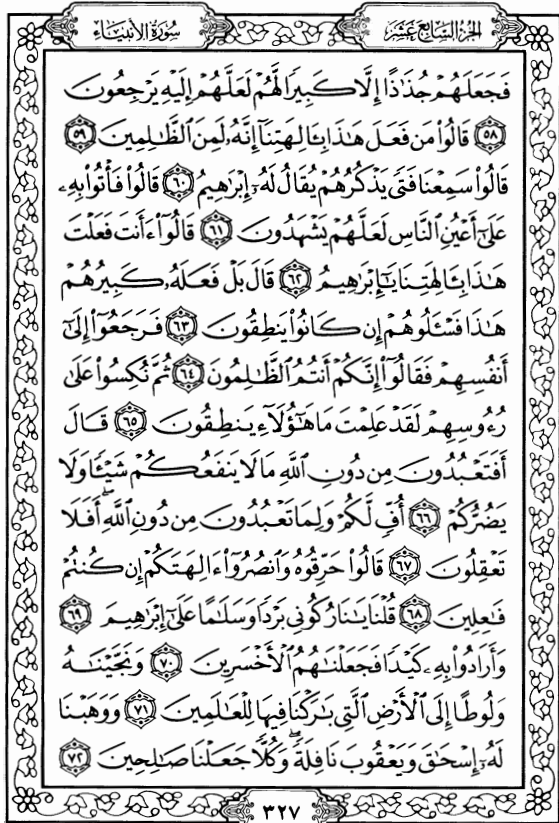 سُورَةُ الأَنبِيَاء
الجُزءُ السَّابِعَ عَشَرَ
فَجَعَلَهُمْ جُذَاذًا إِلَّا كَبِيرًا لَّهُمْ لَعَلَّهُمْ إِلَيْهِ يَرْجِعُونَ
﴿٥٨﴾ قَالُوا۟ مَن فَعَلَ هَـٰذَا بِـَٔالِهَتِنَآ إِنَّهُۥ لَمِنَ ٱلظَّـٰلِمِينَ ﴿٥٩﴾
قَالُوا۟ سَمِعْنَا فَتًى يَذْكُرُهُمْ يُقَالُ لَهُۥٓ إِبْرَٰهِيمُ ﴿٦٠﴾ قَالُوا۟ فَأْتُوا۟ بِهِۦ
عَلَىٰٓ أَعْيُنِ ٱلنَّاسِ لَعَلَّهُمْ يَشْهَدُونَ ﴿٦١﴾ قَالُوٓا۟ ءَأَنتَ فَعَلْتَ
هَـٰذَا بِـَٔالِهَتِنَا يَـٰٓإِبْرَٰهِيمُ ﴿٦٢﴾ قَالَ بَلْ فَعَلَهُۥ كَبِيرُهُمْ
هَـٰذَا فَسْـَٔلُوهُمْ إِن كَانُوا۟ يَنطِقُونَ ﴿٦٣﴾ فَرَجَعُوٓا۟ إِلَىٰٓ
أَنفُسِهِمْ فَقَالُوٓا۟ إِنَّكُمْ أَنتُمُ ٱلظَّـٰلِمُونَ ﴿٦٤﴾ ثُمَّ نُكِسُوا۟ عَلَىٰ
رُءُوسِهِمْ لَقَدْ عَلِمْتَ مَا هَـٰٓؤُلَآءِ يَنطِقُونَ ﴿٦٥﴾ قَالَ
أَفَتَعْبُدُونَ مِن دُونِ ٱللَّهِ مَا لَا يَنفَعُكُمْ شَيْـًٔا وَلَا
يَضُرُّكُمْ ﴿٦٦﴾ أُفٍّ لَّكُمْ وَلِمَا تَعْبُدُونَ مِن دُونِ ٱللَّهِ ۖ أَفَلَا
تَعْقِلُونَ ﴿٦٧﴾ قَالُوا۟ حَرِّقُوهُ وَٱنصُرُوٓا۟ ءَالِهَتَكُمْ إِن كُنتُمْ
فَـٰعِلِينَ ﴿٦٨﴾ قُلْنَا يَـٰنَارُ كُونِى بَرْدًا وَسَلَـٰمًا عَلَىٰٓ إِبْرَٰهِيمَ ﴿٦٩﴾
وَأَرَادُوا۟ بِهِۦ كَيْدًا فَجَعَلْنَـٰهُمُ ٱلْأَخْسَرِينَ ﴿٧٠﴾ وَنَجَّيْنَـٰهُ
وَلُوطًا إِلَى ٱلْأَرْضِ ٱلَّتِى بَـٰرَكْنَا فِيهَا لِلْعَـٰلَمِينَ ﴿٧١﴾ وَوَهَبْنَا
لَهُۥٓ إِسْحَـٰقَ وَيَعْقُوبَ نَافِلَةً ۖ وَكُلًّا جَعَلْنَا صَـٰلِحِينَ ﴿٧٢﴾
٣٢٧